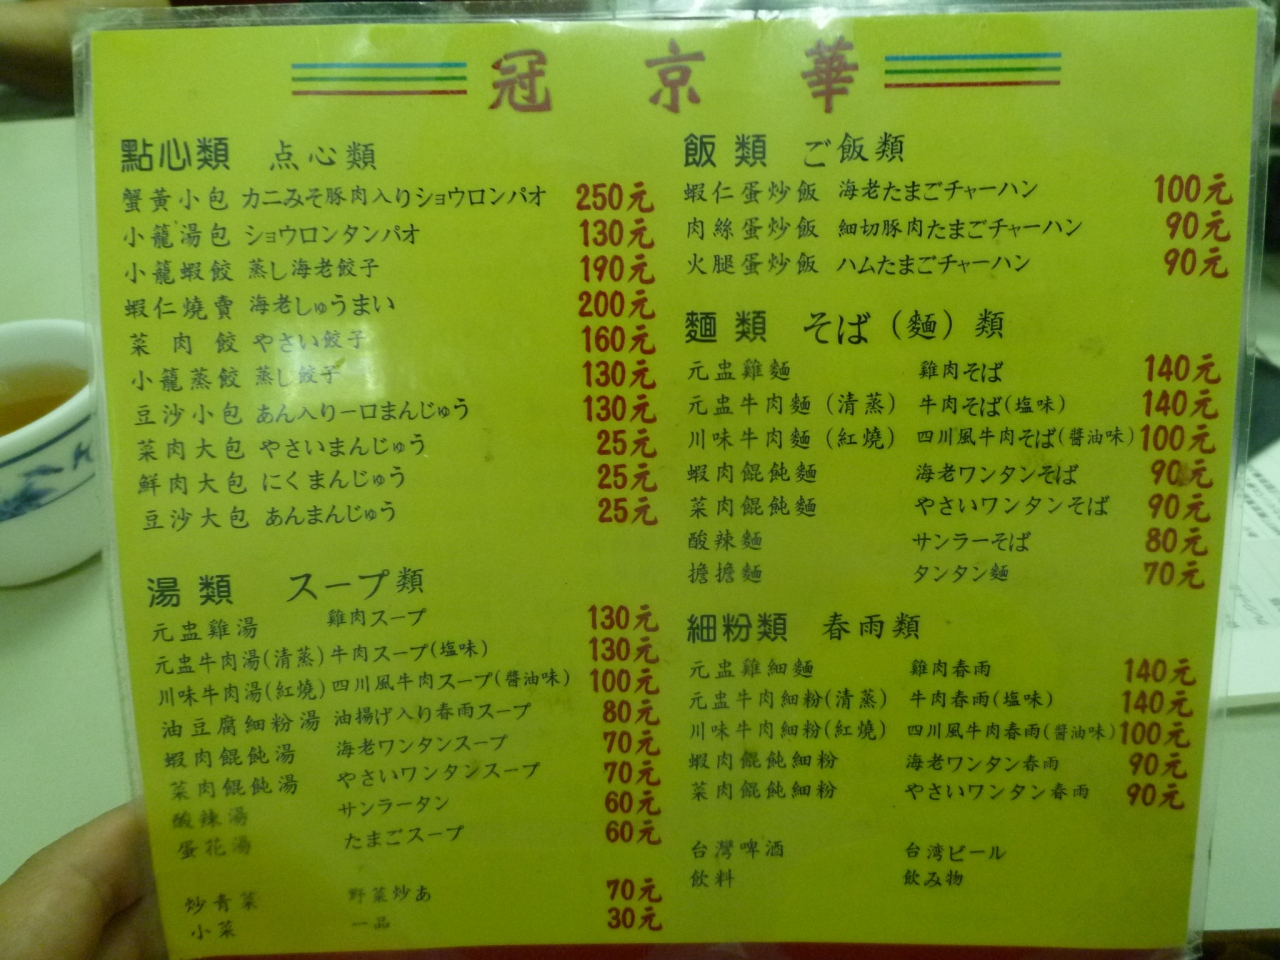 冠京華
點心類 点心類
蟹黃小包 カニみそ豚肉入りショウロンパオ 250元
小籠湯包 ショウロンタンパオ 130元
小籠蝦餃 蒸し海老餃子 190元
蝦仁燒賣 海老しゅうまい 200元
菜肉餃 やさい餃子 160元
小籠蒸餃 蒸し餃子 130元
豆沙小包 あん入り一口まんじゅう 130元
菜肉大包 やさいまんじゅう 25元
鮮肉大包 にくまんじゅう 25元
豆沙大包 あんまんじゅう 25元
湯類 スープ類
元盅雞湯 雞肉スープ 130元
元盅牛肉湯(清蒸) 牛肉スープ(塩味) 130元
川味牛肉湯(紅燒) 四川風牛肉スープ(醬油味) 100元
油豆腐細粉湯 油揚げ入り春雨スープ 80元
蝦肉餛飩湯 海老ワンタンスープ 70元
菜肉餛飩湯 やさいワンタンスープ 70元
酸辣湯 サンラータン 60元
蛋花湯 たまごスープ 60元
炒青菜 野菜炒あ 70元
小菜 一品 30元
飯類 ご飯類
蝦仁蛋炒飯 海老たまごチャーハン 100元
肉絲蛋炒飯 細切豚肉たまごチャーハン 90元
火腿蛋炒飯 ハムたまごチャーハン 90元
麵類 そば(麵)類
元盅雞麵 雞肉そば 140元
元盅牛肉麵(清蒸) 牛肉そば(塩味) 140元
川味牛肉麵(紅燒) 四川風牛肉そば(醬油味) 100元
蝦肉餛飩麵 海老ワンタンそば 90元
菜肉餛飩麵 やさいワンタンそば 90元
酸辣麵 サンラーそば 80元
擔擔麵 タンタン麵 70元
細粉類 春雨類
元盅雞細麵 雞肉春雨 140元
元盅牛肉細粉(清蒸) 牛肉春雨(塩味) 140元
川味牛肉細粉(紅燒) 四川風牛肉春雨(醬油味) 100元
蝦肉餛飩細粉 海老ワンタン春雨 90元
菜肉餛飩細粉 やさいワンタン春雨 90元
台灣啤酒 台湾ビール
飲料 飲み物